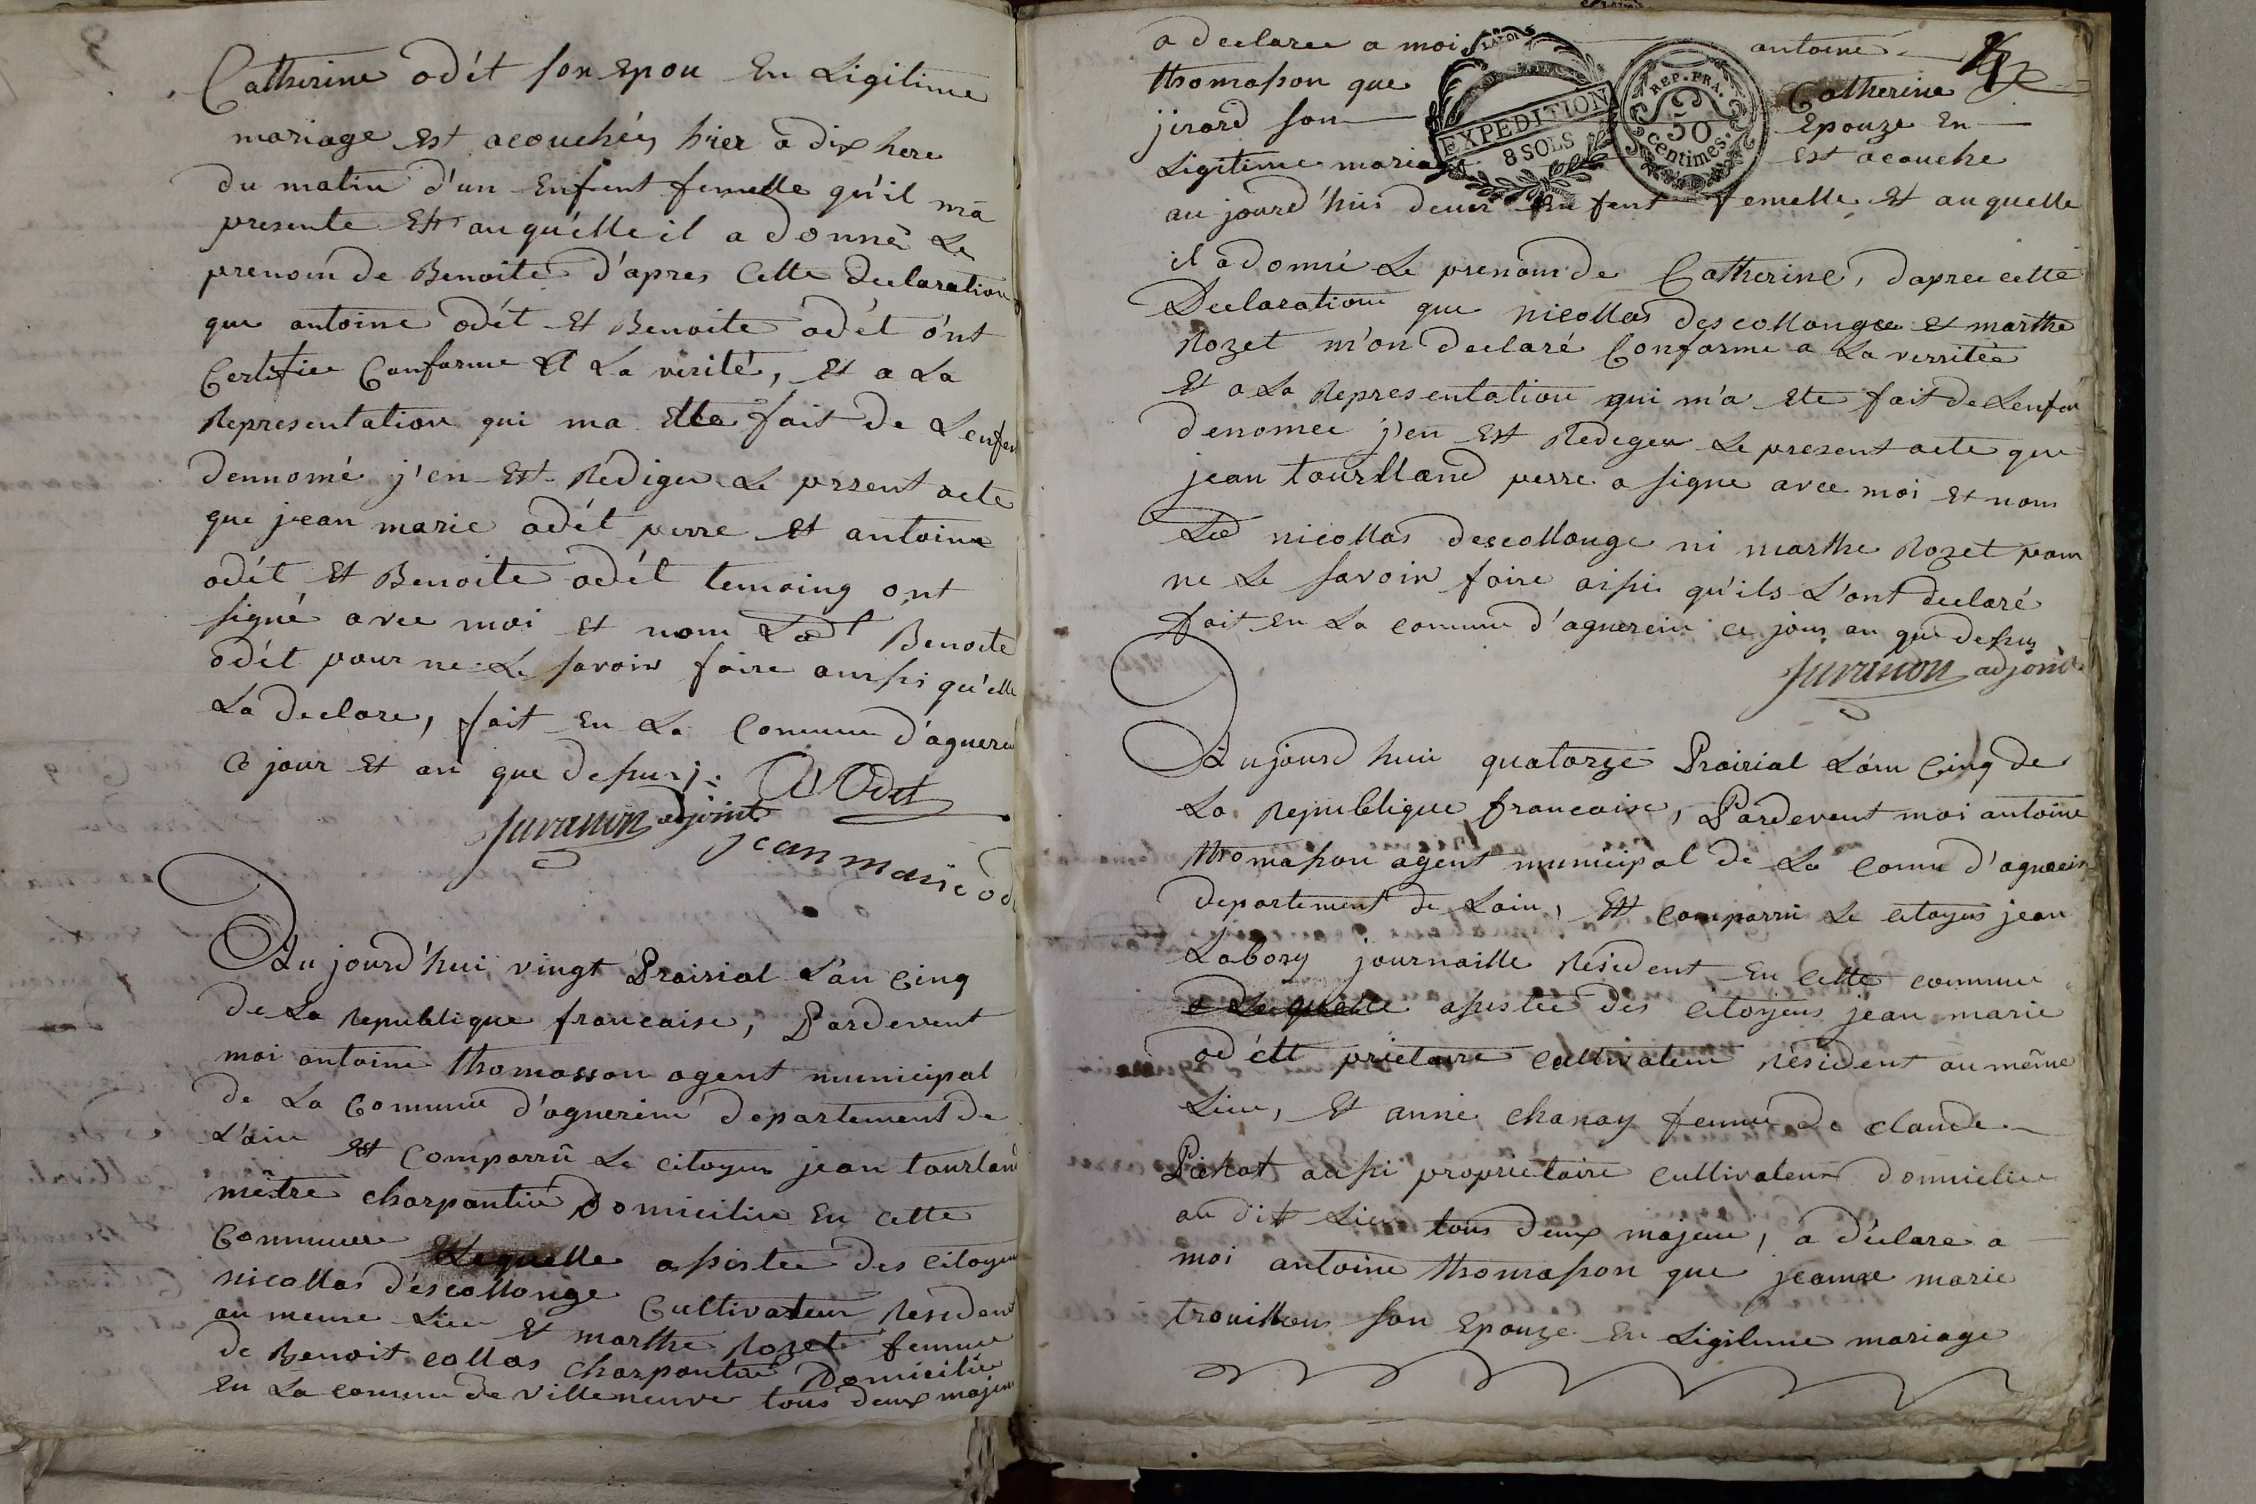 Catherine odét son Epou En Ligitime
mariage Est acouchéz hier a dix here
du matin d'un Enfent femelle qu'il ma
presente Et auquelle il a donné Le
prenom de Benoite d'apres Cette declaration
que antoine odét Et Benoite odét ónt
Certifie Conforme Et La verité, Et a La
Representation qui ma Ette fait de Lenfen
dennomé j'en Est Rédiger Le pressent acte
que jean marie odét perre Et antoine
odét Et Benoite odét temoing ont
signé avec moi Et nom Led Benoite
odét pour ne Le savoir faire aussi qu'elle
La declare, fait En La Commune d'aguerein
Ce jour Et an que dessus
Odet
Juranon adjoint
jean marie od
Aujourd'hui vingt Prairial L'an Cinq
de La Republique francaise, Pardevent
moi antoine thomasson agent municipal
de La Commune d'aguerins departement de
L'ain Est Comparrû Le citoyen jean tourland
mêtre charpantié domicilie En Cette
Commune Lequelle assistee des Citoyens
nicollas déscollonge Cultivateur Resident
au meme Lieu Et marthe Rozet femme
de Benoit collas Charpantié domicilie
En La comune de villeneuve tous deux majeur
a declaree a moi antoine
thomasson que Catherine
jirard son Epouze En
Ligitime mariage Est acouche
aujourd'hui deun Enfent femelle Et auquelle
il a donné Le prenom de Catherine, dapree cette
Declaration que nicollas descollonge et marthe
Rozet m'on declaré Conforme a La verritée
Et a La Representation qui m'a Ete fait de Lenfen
denomee j'en Est Redeger Le present acte que
jean tourlland perre a signe avec moi Et nom
Led nicollas descollonge ni marthe Rozet pour
ne Le savoir faire aissi qu'ils L'ont declaré
fait En La comune d'aguerein ce jour an que dessus
Juranon adjoint
EXPEDITION
8 SOLS
REP. FRA.
50
Centimes.
Aujourd huii quatorze Prairial L'an Cinq de
La Republique francaise, Pardevent moi antoine
thomasson agent municipal de La comu d'aguerein
departement de Lain, Est comparrû Le citoyen jean
Labory journaille Résident En cette commune
Lequelle assistee des citoyens jean marie
odétt prietaire cultivateur Résident au même
Lieu, Et anne chanay femme de claude
Pichat aussi proprietaire cultivateur domicilie
au dit Lieu tous deux majeur, a déclare a
moi antoine thomasson que jeanne marie
trouillieu son Epouze En Ligitime mariage